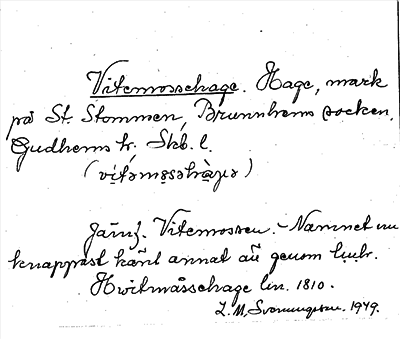 Vitemossehage. Hage, mark
på St. Stommen, Brunnhems socken,
Gudhems hr. Skb. l.
Jämf. Vitemossen. - Namnet nu
knappast känt annat än genom
Hwitmåssehage lm. 1810.
L. M. Svenungsson. 1949.